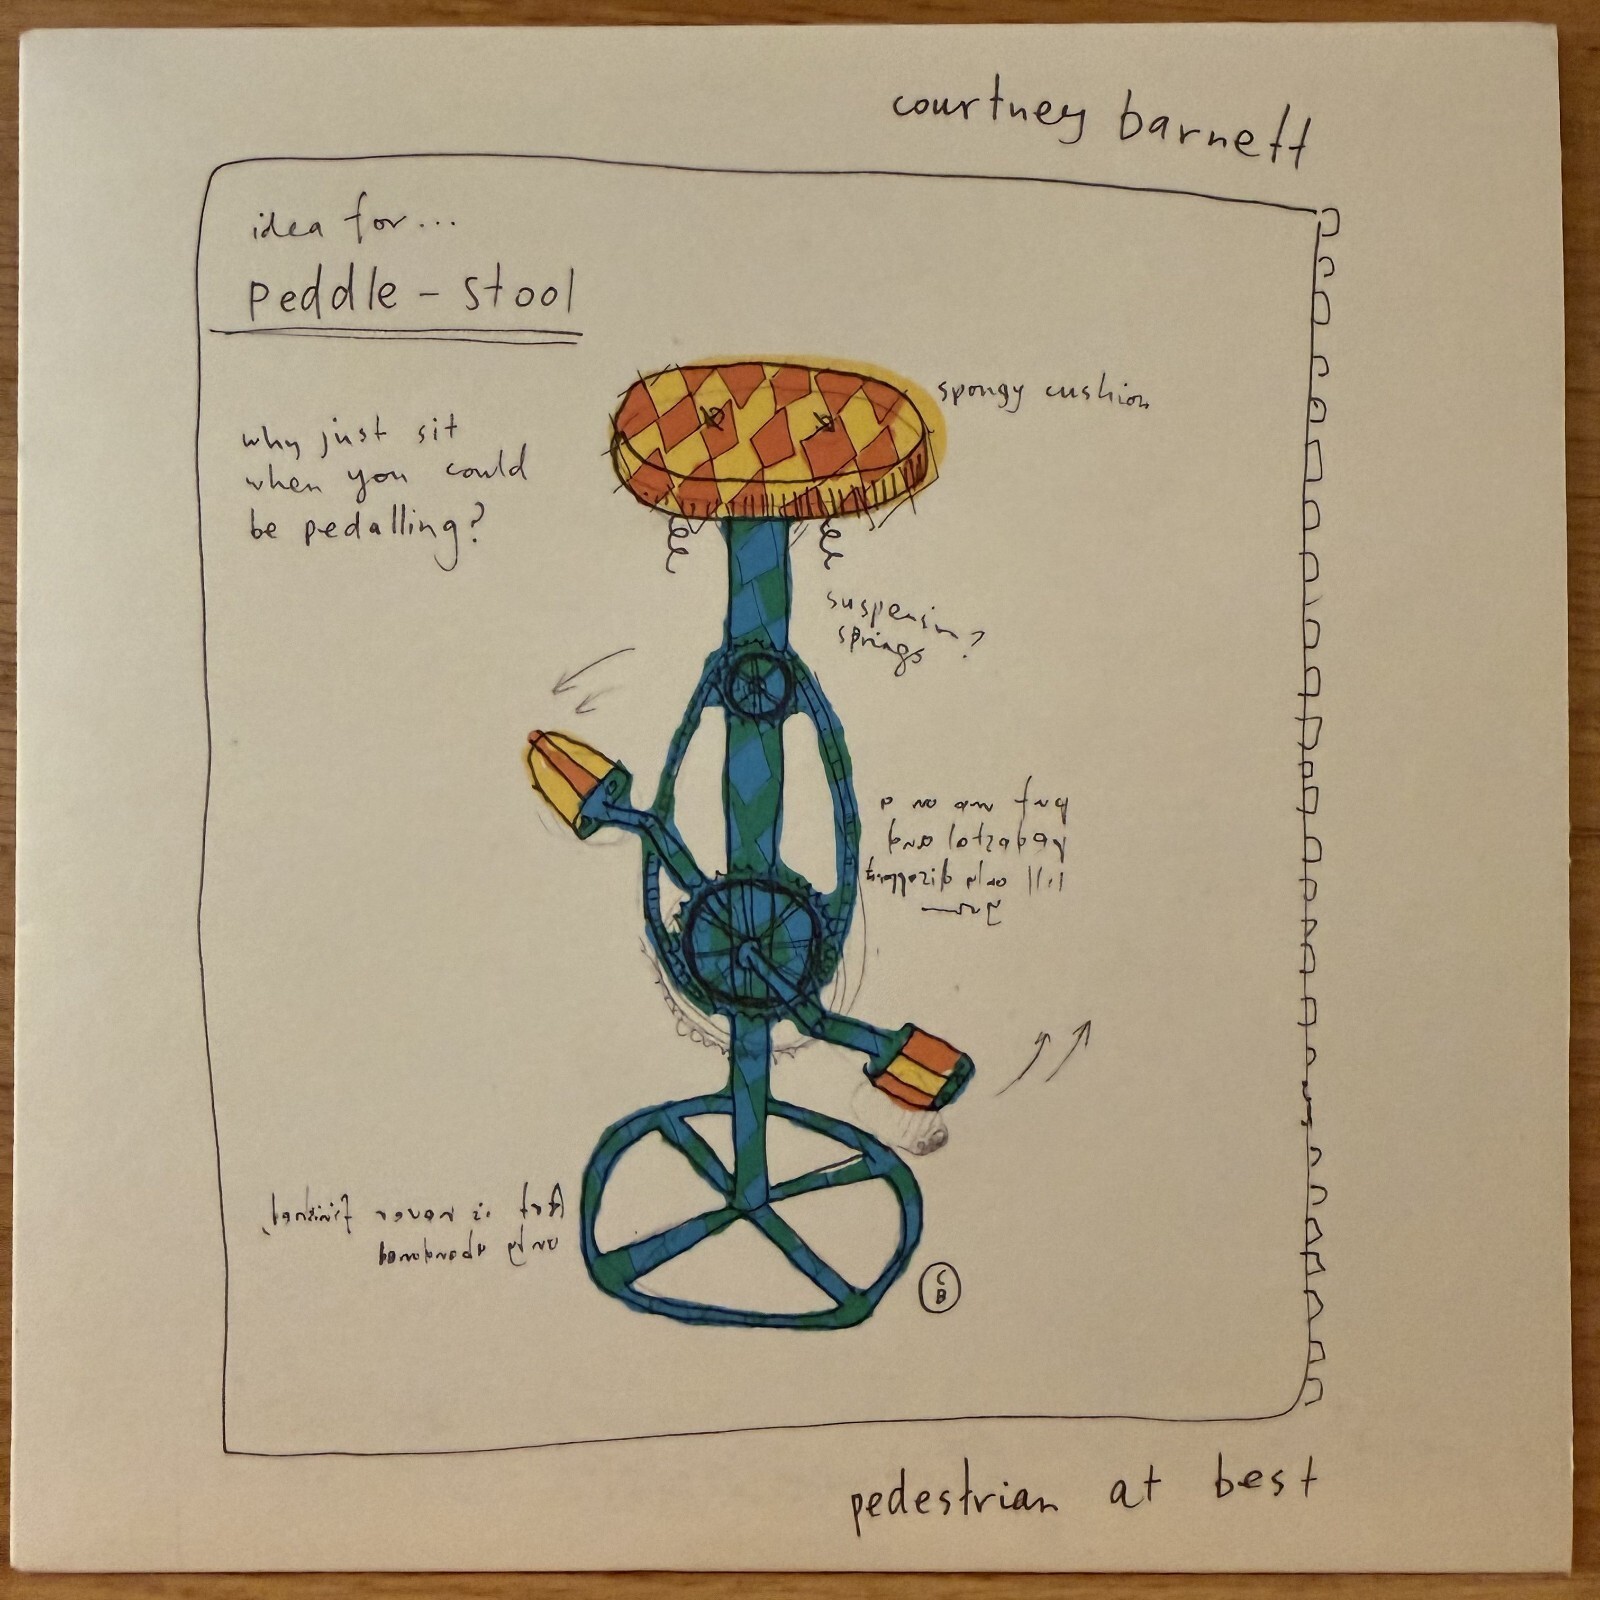 courtney barnett
idea for...
peddle - stool
spongy cushion
why just sit
when you could
be pedalling?
suspension
springs ?
put me on a
pedastal and
I'll only disappoint
you
Art is never finished,
only abandoned
C
B
pedestrian at best